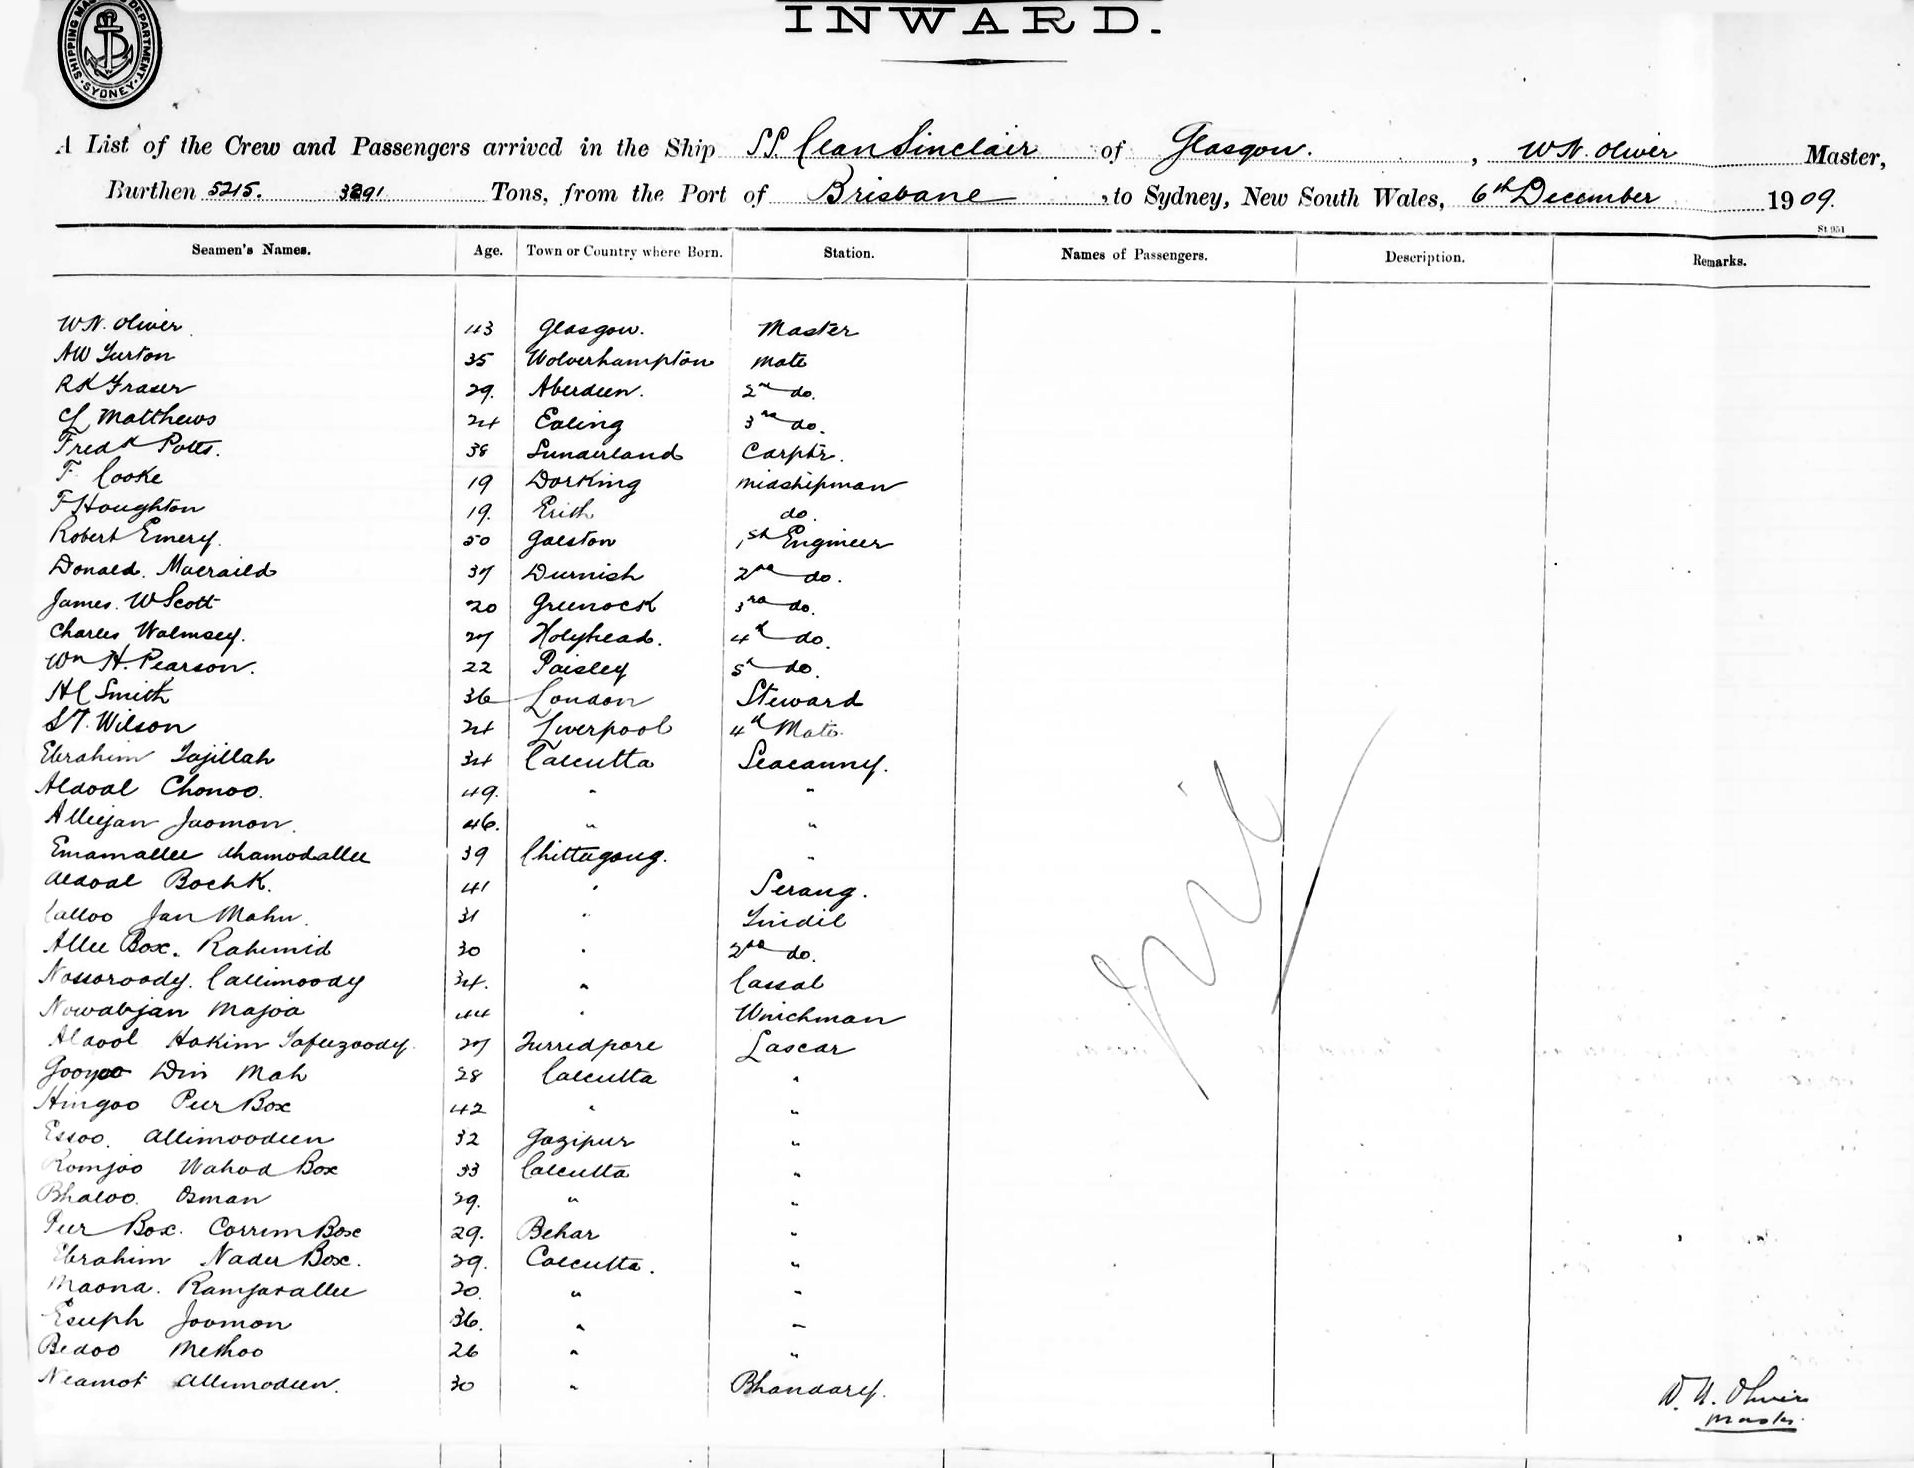 SHIPPING MA DEPARTMENT. SYDNEY
INWARD.
A List of the Crew and Passengers arrived in the Ship SS. Clan Sinclair of Glasgow. , W N. Oliver Master,
Burthen 5215. 3391 Tons, from the Port of Brisbane , to Sydney, New South Wales, 6th December 1909.
St 951
Seamen's Names. Age. Town or Country where Born. Station. Names of Passengers. Description. Remarks.
W N. Oliver 43 Glasgow. Master
AW Turton 35 Wolverhampton Mate
R K Fraser 29. Aberdeen. 2nd do.
Matthews 24 Ealing 3rd do.
Fredk Potts. 38 Sunderland Carptr.
F. Cooke 19 Dorking Midshipman
F Houghton 19. Erith do.
Robert Emery. 50 Galston 1st Engineer
Donald. Macraild 37 Durnish 2nd do.
James. W Scott 20 Greenock 3rd do.
Charles Walmsey. 27 Holyhead. 4th do.
Wm H. Pearson. 22 Paisley 5th do.
H C Smith 36 London Steward
S T. Wilson 24 Liverpool 4th Mate.
Ebrahim Tajillah 34 Calcutta Seacunny.
Abdoal Chonoo. 49. " "
Alliejan Joomon. 46. " "
Emamallee Ahamodallee 39 Chittagong. "
Abdoal Bochk. 41 " Serang.
Calloo Jan Mahn. 31 " Tindil
Allee Box. Rahimid 30 " 2nd do.
Nossoroody. Callimoody 34. " Cassab
Nowabjan Majoa 44 " Winchman
Abdool Hakim Tafuzoody. 27 Furredpore Lascar
Gooyoo Din Mah 28 Calcutta "
Hingoo Peer Box 42 " "
Essoo. Allimoodeen 32 Gazipur "
Romjoo Wahod Box 33 Calcutta "
Bhaloo. Osman 29. " "
Peer Box. Corrim Box 29. Behar "
Ebrahim Nader Box. 29. Calcutta. "
Maona. Ramjavallee 20. " "
Esuph Joomon 36. " "
Bedoo Methoo 26 " "
Neamot Allimodeen. 30 " Bhandary.
Nil
W. N. Oliver
Master.